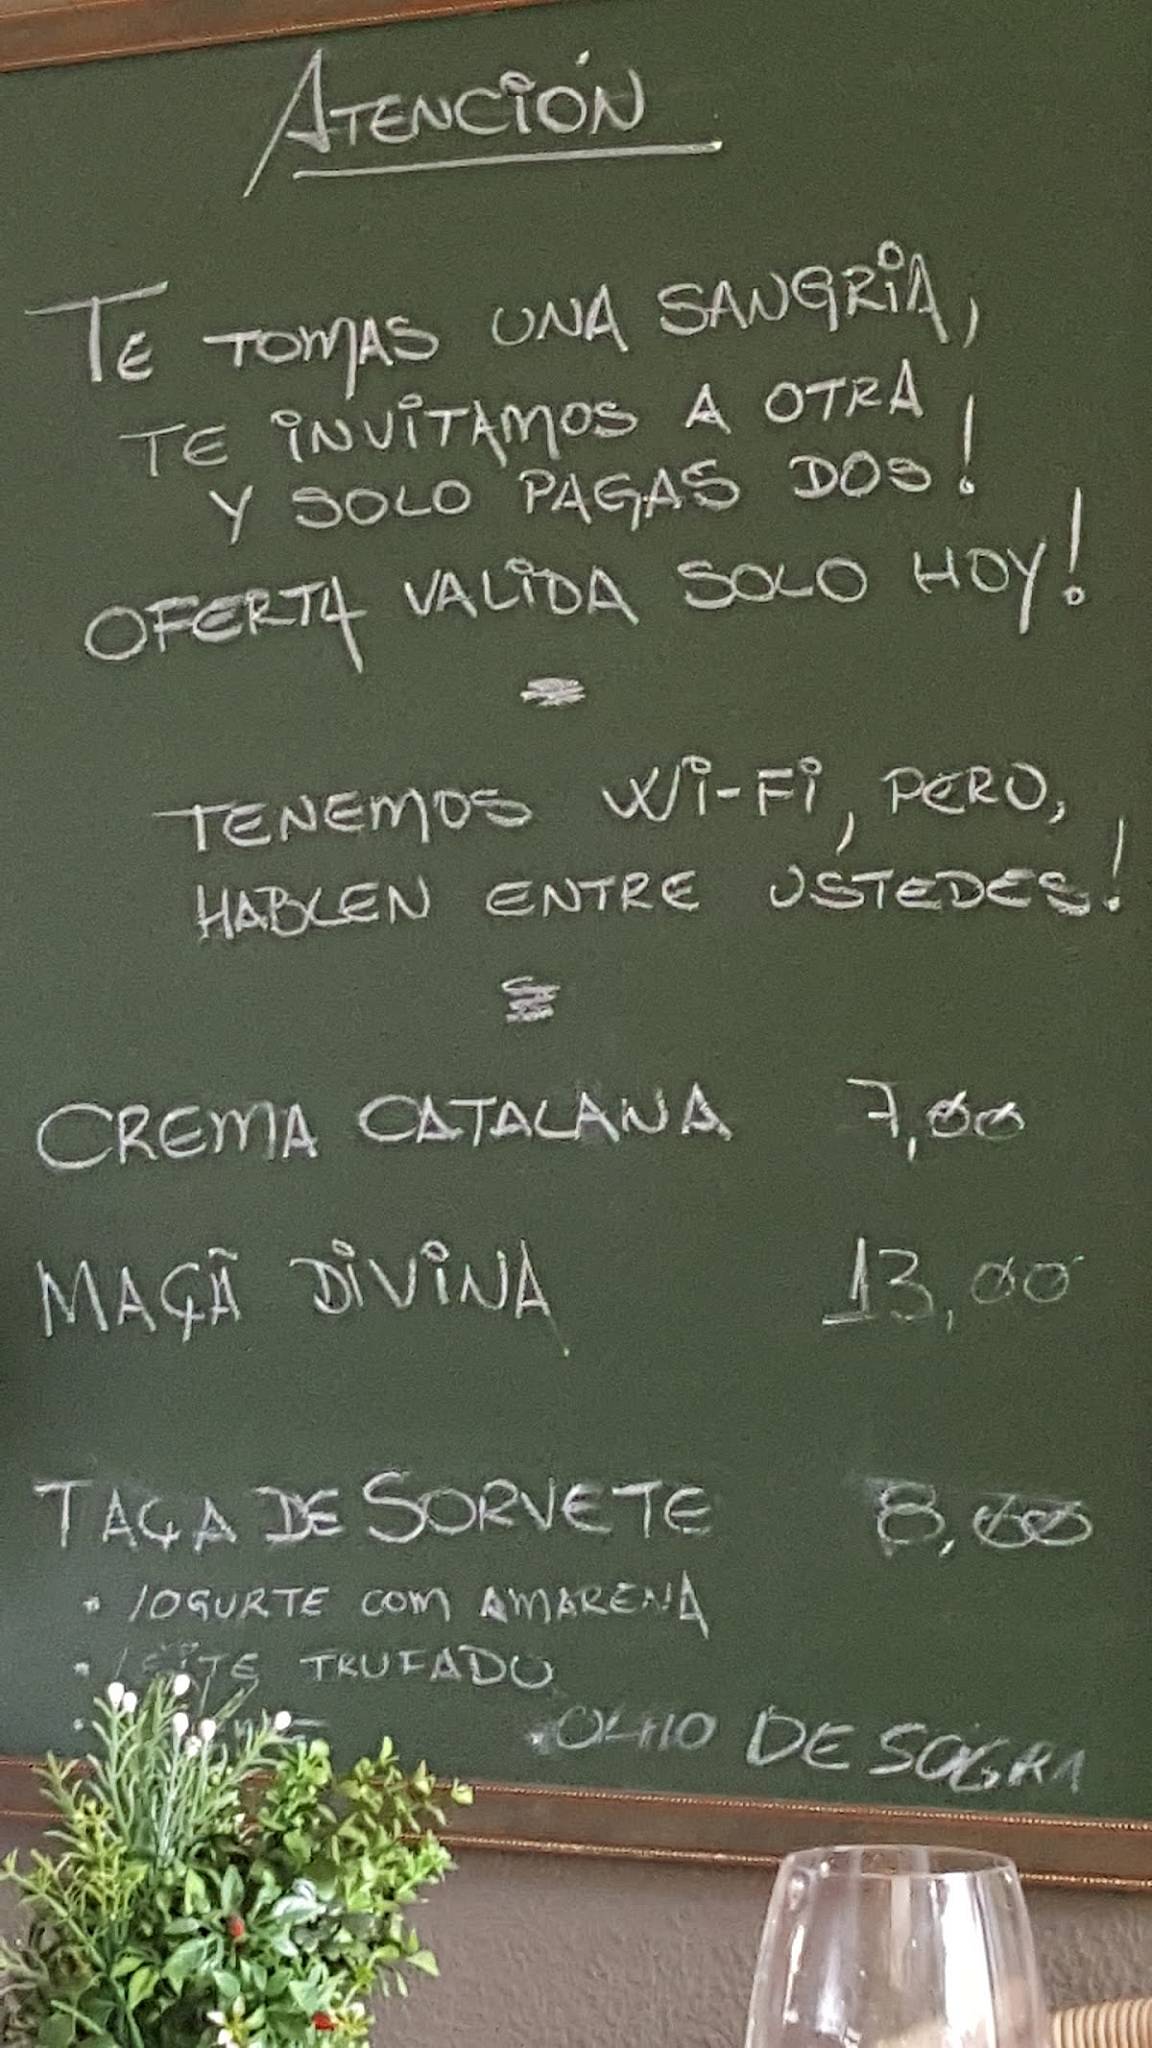 ATENCIÓN
TE TOMAS UNA SANGRIA,
TE INVITAMOS A OTRA
Y SOLO PAGAS DOS!
OFERTA VALIDA SOLO HOY!
TENEMOS WI-FI, PERO,
HABLEN ENTRE USTEDES!
CREMA CATALANA 7,00
MAÇÃ DIVINA 13,00
TAÇA DE SORVETE 8,00
• IOGURTE COM AMARENA
• LEITE TRUFADO
• OLHO DE SOGRA